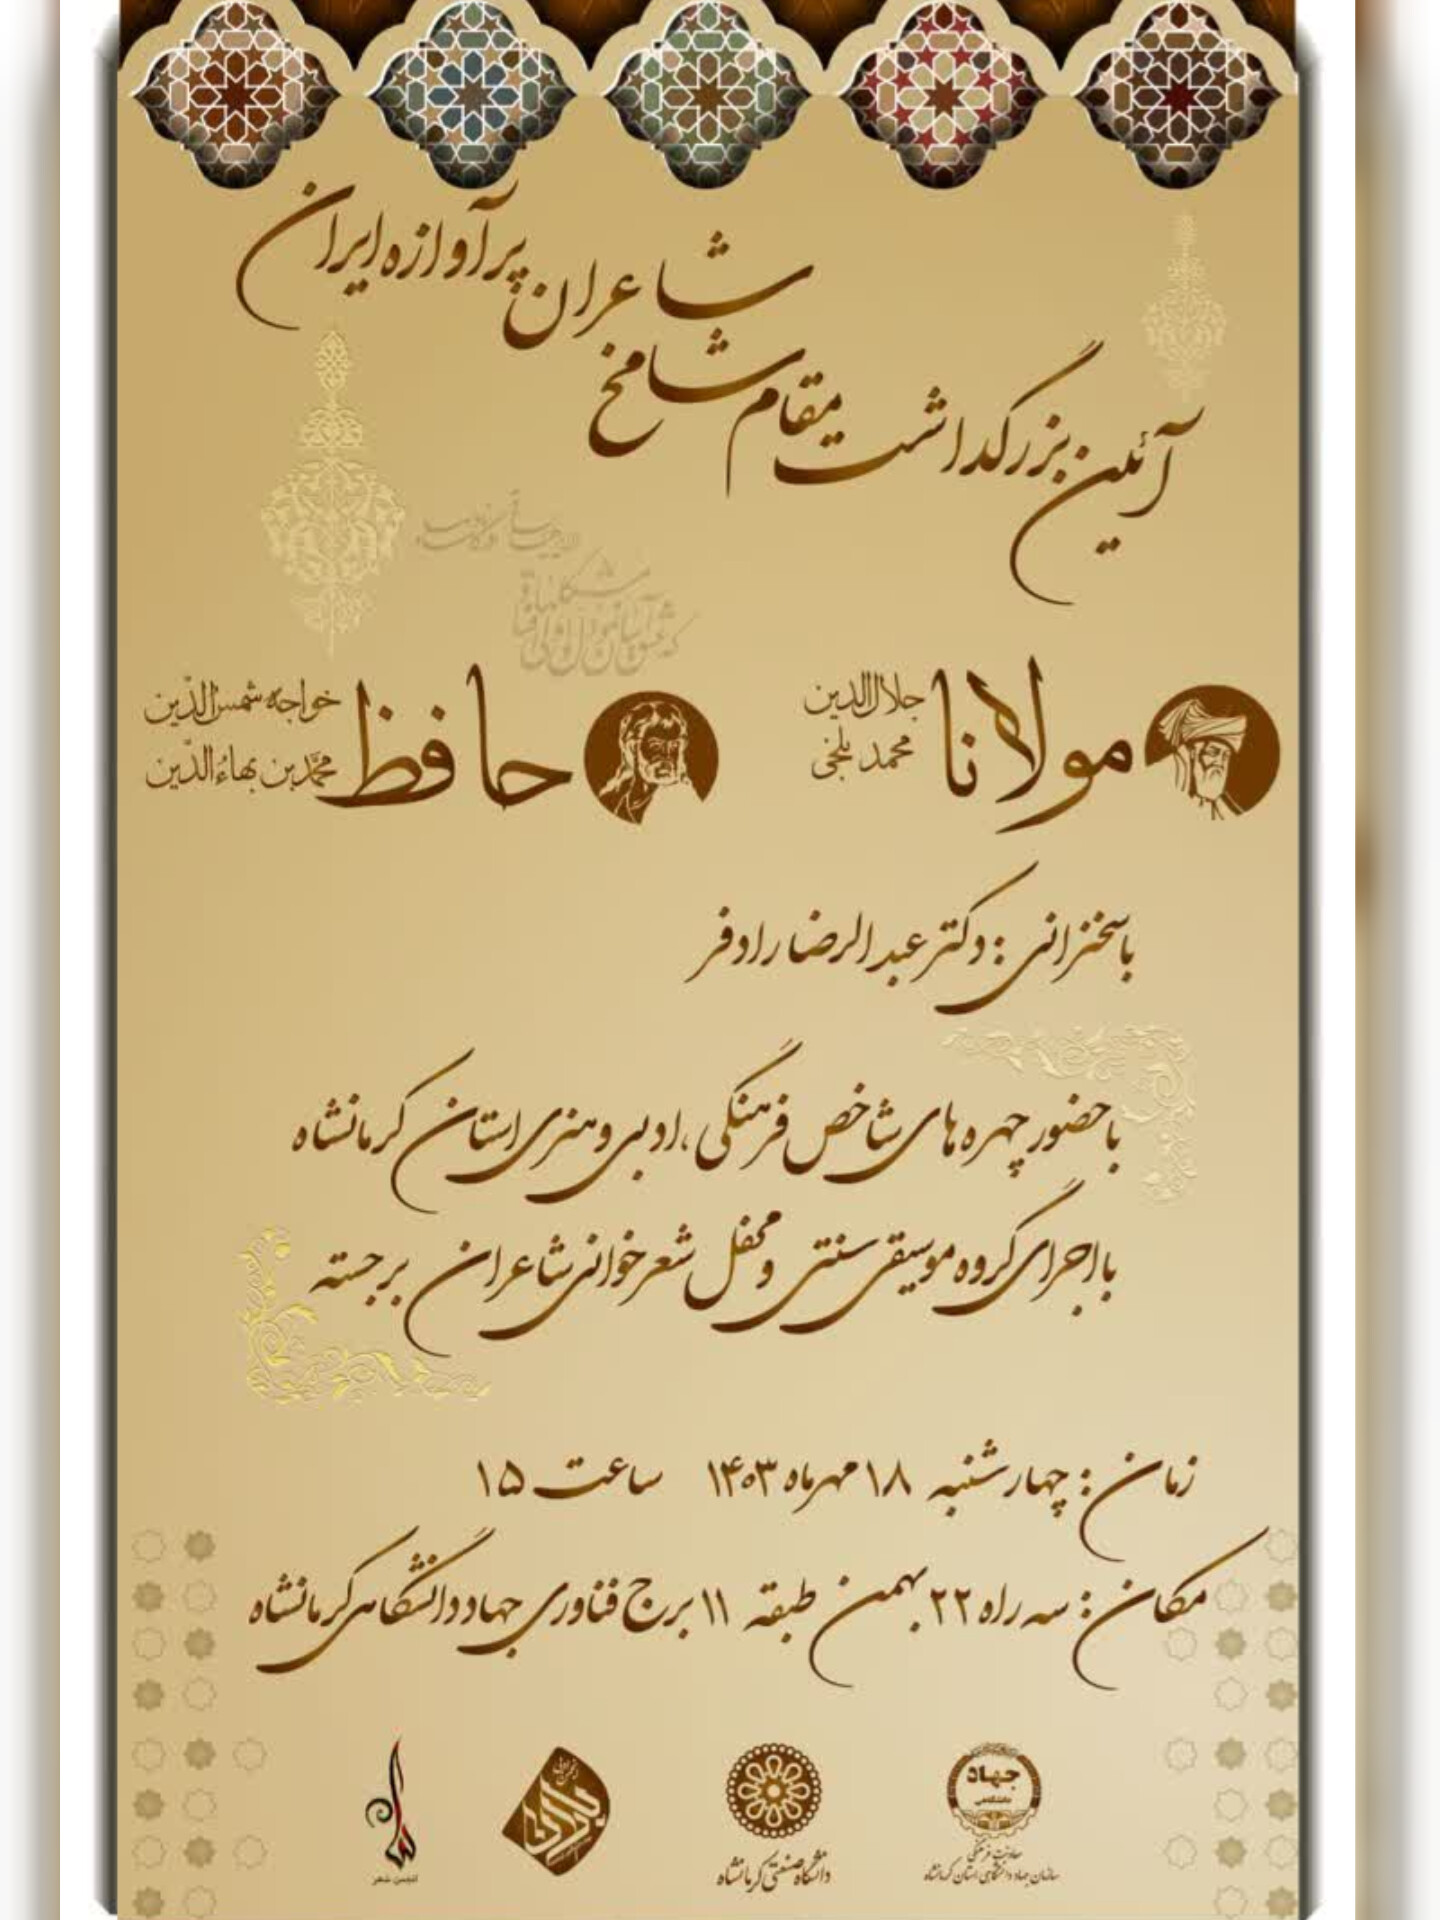 آئین بزرگداشت مقام شامخ
شاعران پرآوازه ایران
مولانا
جلال‌الدین
محمد بلخی
حافظ
خواجه شمس‌الدّین
محمّد بن بهاءُالدّین
با سخنرانی : دکتر عبدالرضا رادفر
با حضور چهره های شاخص فرهنگی ،ادبی و هنری استان کرمانشاه
با اجرای گروه موسیقی سنتی و محفل شعر خوانی شاعران برجسته
زمان : چهارشنبه ۱۸ مهرماه ۱۴۰۳ ساعت ۱۵
مکان : سه راه ۲۲ بهمن طبقه ۱۱ برج فناوری جهاد دانشگاهی کرمانشاه
جهاد
دانشگاهی
معاونت فرهنگی
سازمان جهاد دانشگاهی استان کرمانشاه
دانشگاه صنعتی کرمانشاه
انجمن شعر